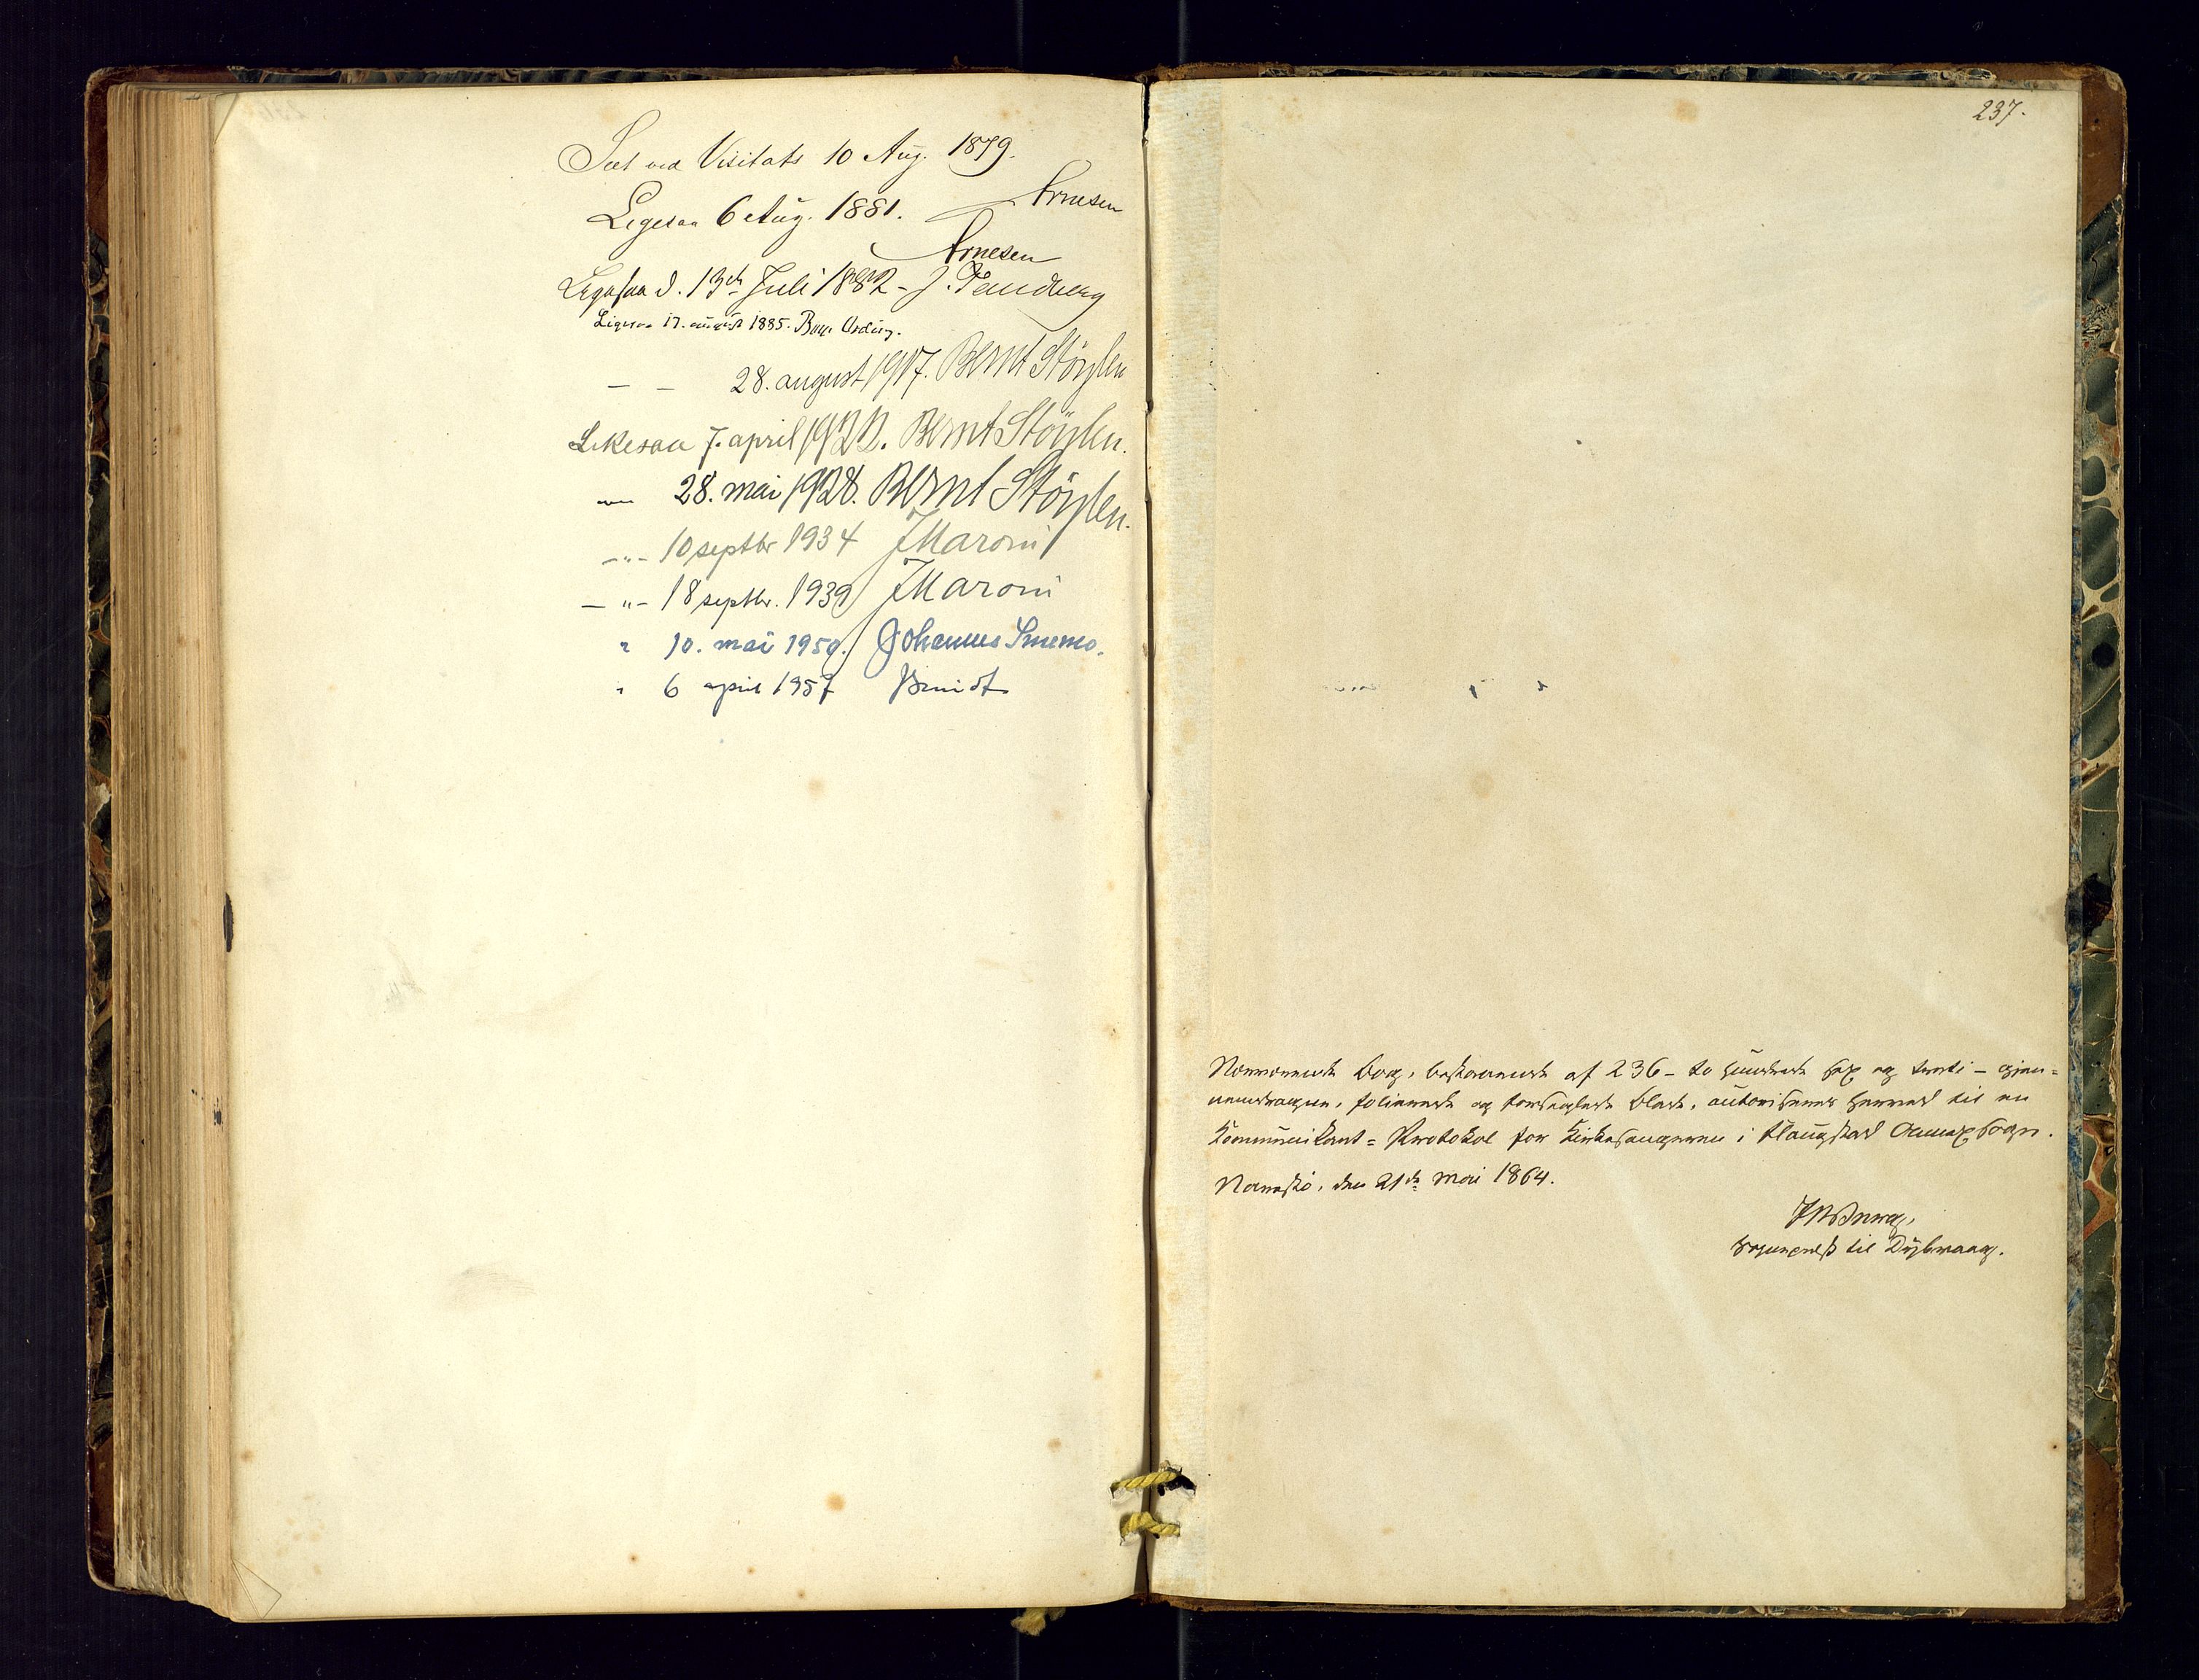 Seet ved Visitats 10 Aug. 1879.
Arnesen
Ligesaa 6 Aug. 1881.
Arnesen
Ligesaa d. 13de Juli 1882 - J. Tandberg
Ligesaa 17. august 1885.
— — 28. august 1917. Bernt Støylen
Likesaa 7. april 1922. Bernt Støylen.
—"— 28. mai 1928. Bernt Støylen.
—"— 10 septbr 1934 JMaroni
—"— 18 septbr. 1939 JMaroni
" 10. mai 1950. Johannes Smemo.
" 6 april 1957
237.
Nærværende Bog, bestaaende af 236 - to hundrede sex og tredive - gjen=
nemdragne, folierede og forseglede Blade, autoriseres herved til en
Kommunikant=Protokol for Kirkesangeren i Flaugstad Annexsogn.
den 21de Mai 1864.
Sogneprest til Dybvaag.